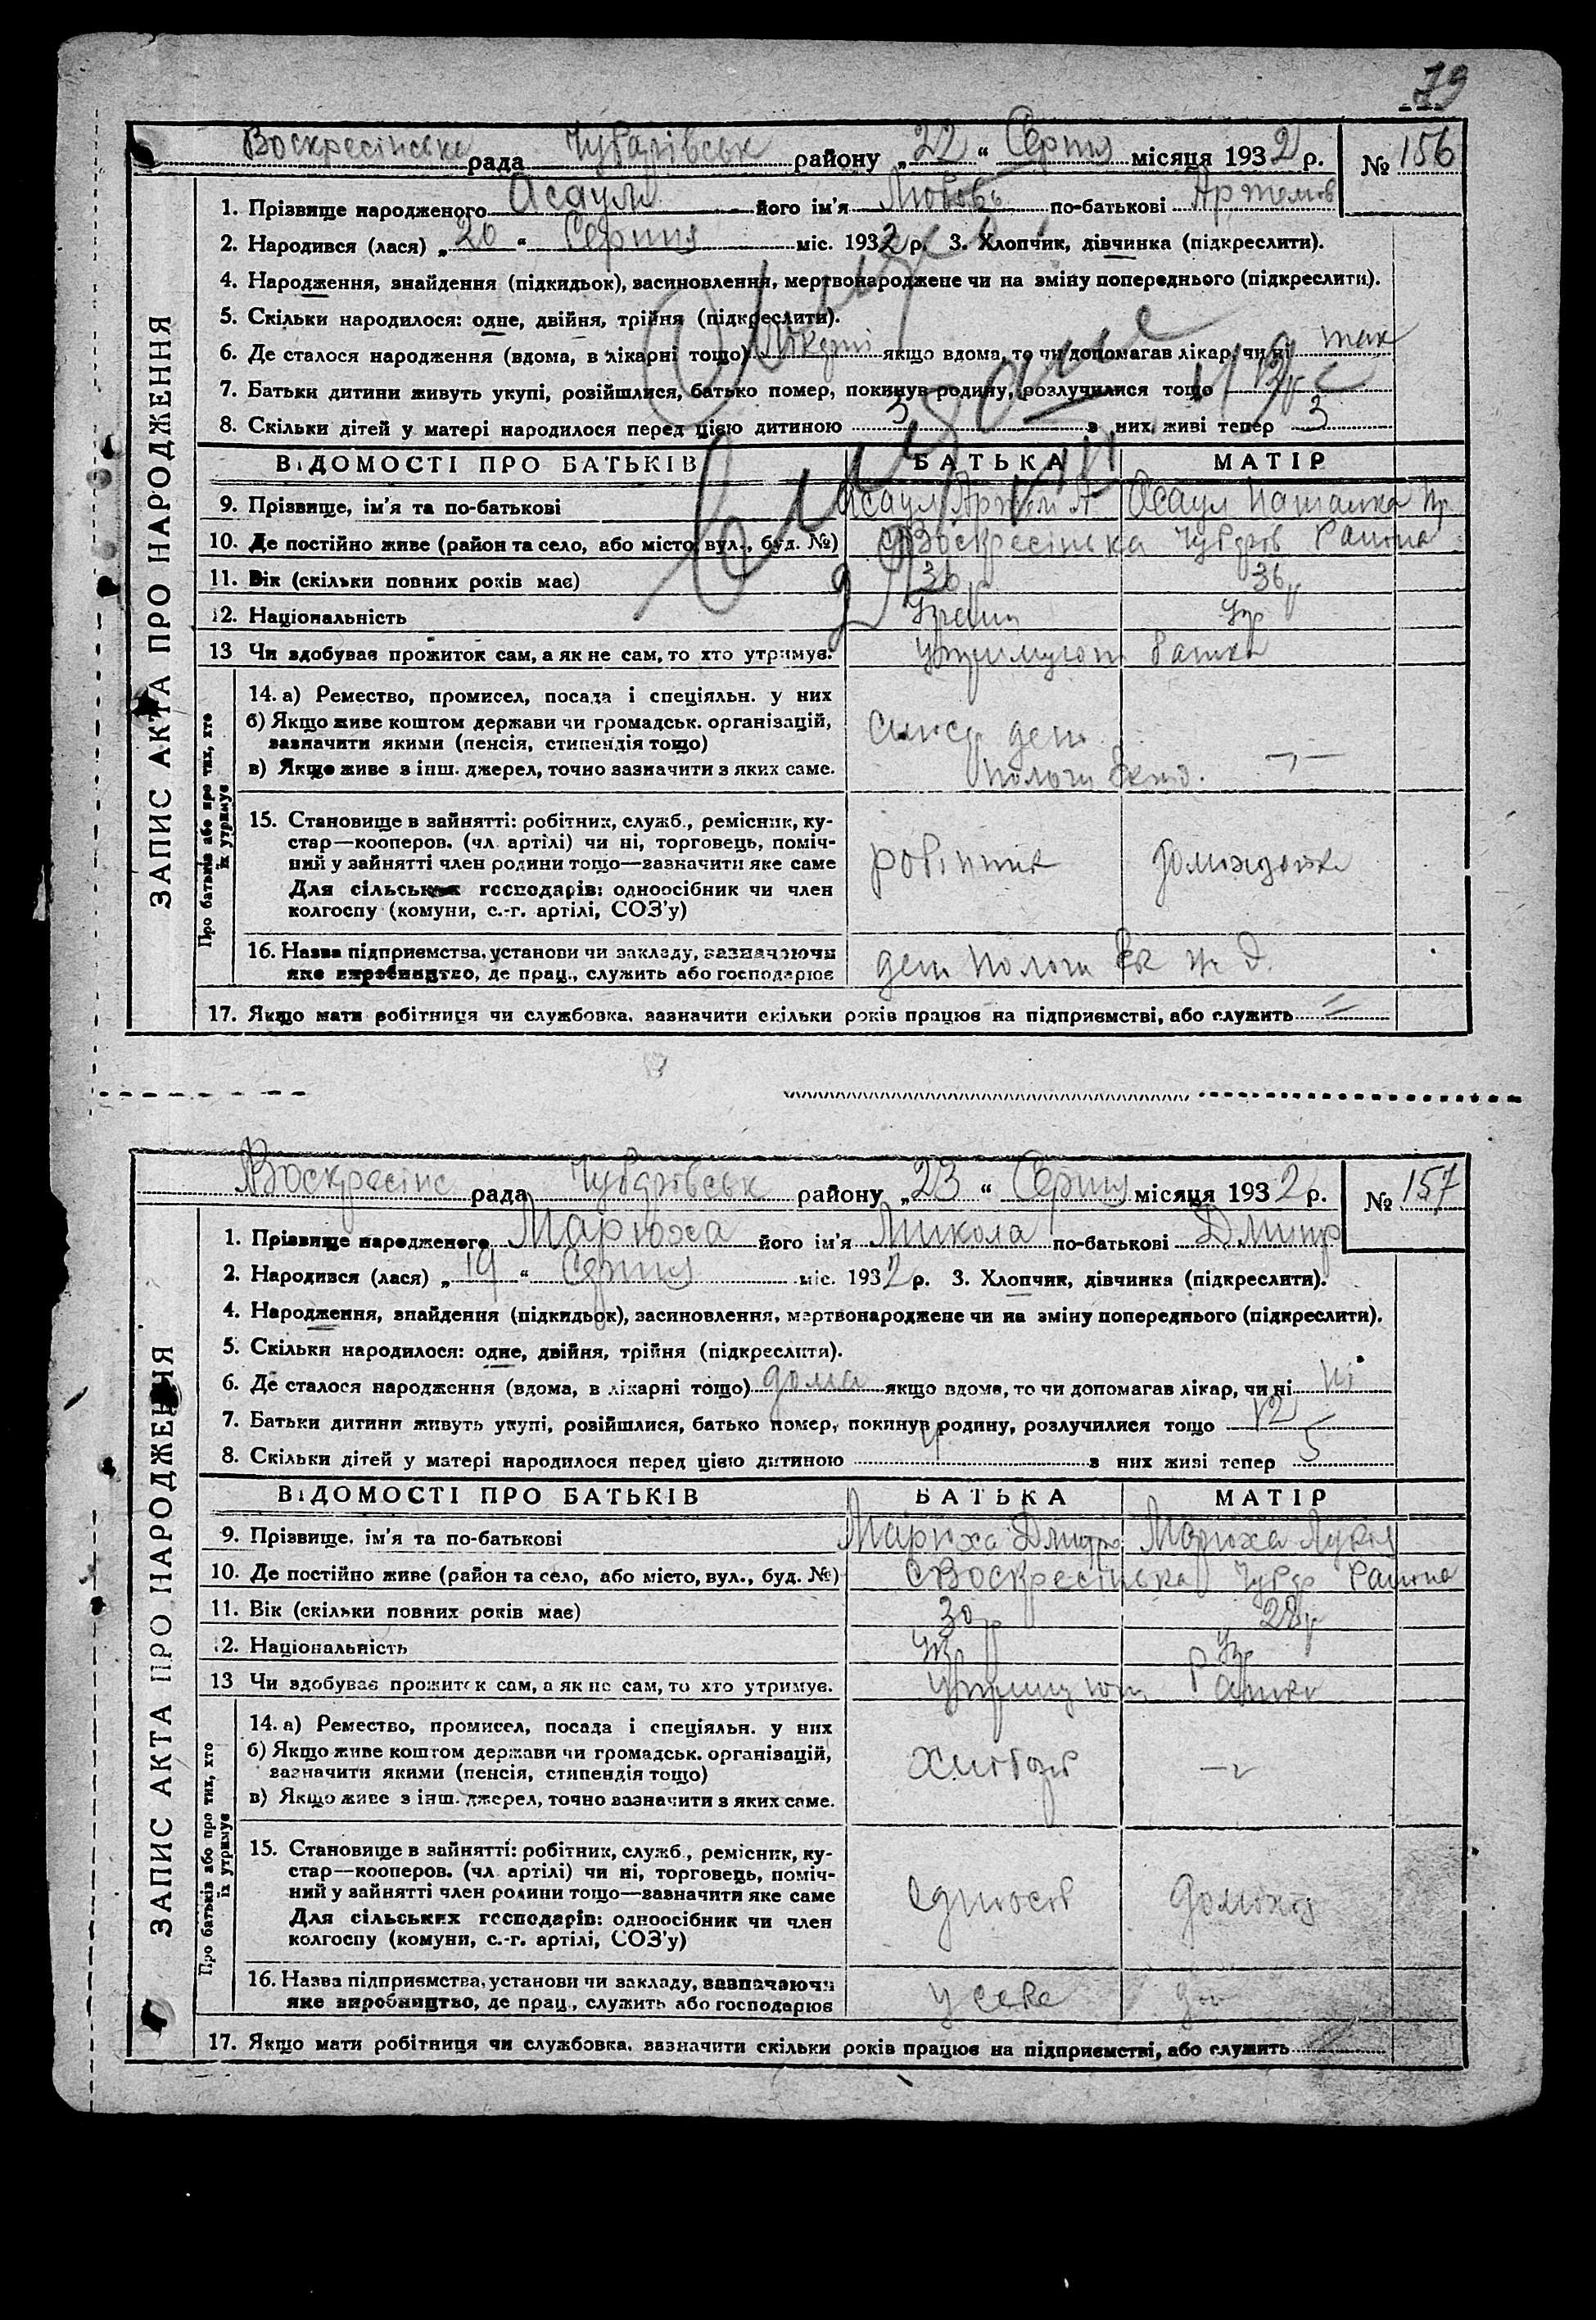 79
Воскресінська рада Чубарівськ району „22“ Серпня місяця 1932 р. № 156
ЗАПИС АКТА ПРО НАРОДЖЕННЯ
1. Прізвище народженого Асаул його ім'я Любовь по-батькові Артемов
2. Народився (лася) „20“ Серпня міс. 1932 р. 3. Хлопчик, дівчинка (підкреслити).
4. Народження, знайдення (підкидьок), засиновлення, мертвонароджене чи на зміну попереднього (підкреслити).
5. Скільки народилося: одне, двійня, трійня (підкреслити).
6. Де сталося народження (вдома, в лікарні тощо) якщо вдома, то чи допомагав лікар, чи ні так
7. Батьки дитини живуть укупі, розійшлися, батько помер, покинув родину, розлучилися тощо
8. Скільки дітей у матері народилося перед цією дитиною 3 з них живі тепер 3
ВІДОМОСТІ ПРО БАТЬКІВ БАТЬКА МАТІР
9. Прізвище, ім'я та по-батькові Асаул Артем А Асаул Наталка
10. Де постійно живе (район та село, або місто, вул., буд. №) с Воскресінька Чубарів Району
11. Вік (скільки повних років має) 36 р 36 р
12. Національність Украін Укр
13 Чи здобуває прожиток сам, а як не сам, то хто утримує. утримують батьки
Про батьків або про тих, хто їх утримує
14. а) Ремество, промисел, посада і спеціяльн. у них
б) Якщо живе коштом держави чи громадськ. організацій,
зазначити якими (пенсія, стипендія тощо)
в) Якщо живе з інш. джерел, точно зазначити з яких саме.
слюсар депо Пологи
15. Становище в зайнятті: робітник, служб., ремісник, ку-
стар—кооперов. (чл. артілі) чи ні, торговець, поміч-
ний у зайнятті член родини тощо—зазначити яке саме
Для сільських господарів: одноосібник чи член
колгоспу (комуни, с.-г. артілі, СОЗ'у)
робітник домогосп
16. Назва підприємства, установи чи закладу, зазначаючи
яке виробництво, де прац., служить або господарює
депо Пологи
17. Якщо мати робітниця чи службовка, зазначити скільки років працює на підприємстві, або служить
Воскресінс рада Чубарівськ району „23“ Серпня місяця 1932 р. № 157
ЗАПИС АКТА ПРО НАРОДЖЕННЯ
1. Прізвище народженого Марюха його ім'я Микола по-батькові Дмитр
2. Народився (лася) „19“ Серпня міс. 1932 р. 3. Хлопчик, дівчинка (підкреслити).
4. Народження, знайдення (підкидьок), засиновлення, мертвонароджене чи на зміну попереднього (підкреслити).
5. Скільки народилося: одне, двійня, трійня (підкреслити).
6. Де сталося народження (вдома, в лікарні тощо) дома якщо вдома, то чи допомагав лікар, чи ні ні
7. Батьки дитини живуть укупі, розійшлися, батько помер, покинув родину, розлучилися тощо
8. Скільки дітей у матері народилося перед цією дитиною 4 з них живі тепер 5
ВІДОМОСТІ ПРО БАТЬКІВ БАТЬКА МАТІР
9. Прізвище, ім'я та по-батькові Марюха Дмитро Марюха Лукія
10. Де постійно живе (район та село, або місто, вул., буд. №) с Воскресінька Чубар Району
11. Вік (скільки повних років має) 30 р 28 р
12. Національність Укр Укр
13 Чи здобуває прожиток сам, а як не сам, то хто утримує. утримують батьки
Про батьків або про тих, хто їх утримує
14. а) Ремество, промисел, посада і спеціяльн. у них
б) Якщо живе коштом держави чи громадськ. організацій,
зазначити якими (пенсія, стипендія тощо)
в) Якщо живе з інш. джерел, точно зазначити з яких саме.
хлібороб
15. Становище в зайнятті: робітник, служб., ремісник, ку-
стар—кооперов. (чл. артілі) чи ні, торговець, поміч-
ний у зайнятті член родини тощо—зазначити яке саме
Для сільських господарів: одноосібник чи член
колгоспу (комуни, с.-г. артілі, СОЗ'у)
16. Назва підприємства, установи чи закладу, зазначаючи
яке виробництво, де прац., служить або господарює
у себе
17. Якщо мати робітниця чи службовка, зазначити скільки років працює на підприємстві, або служить